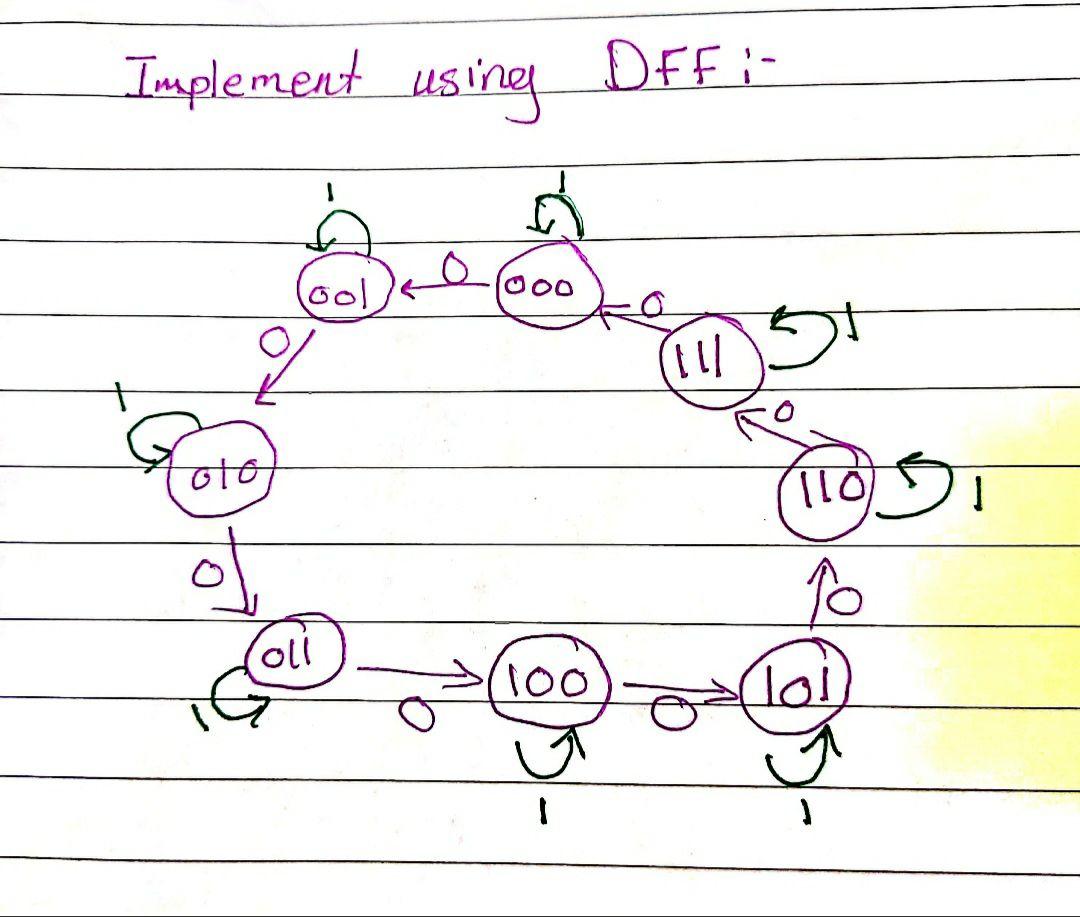 Implement using DFF :-
1 1
001 0 000
0 111 1
0
1 010 0 110 1
0 0
011 100 101
1 0 0
1 1